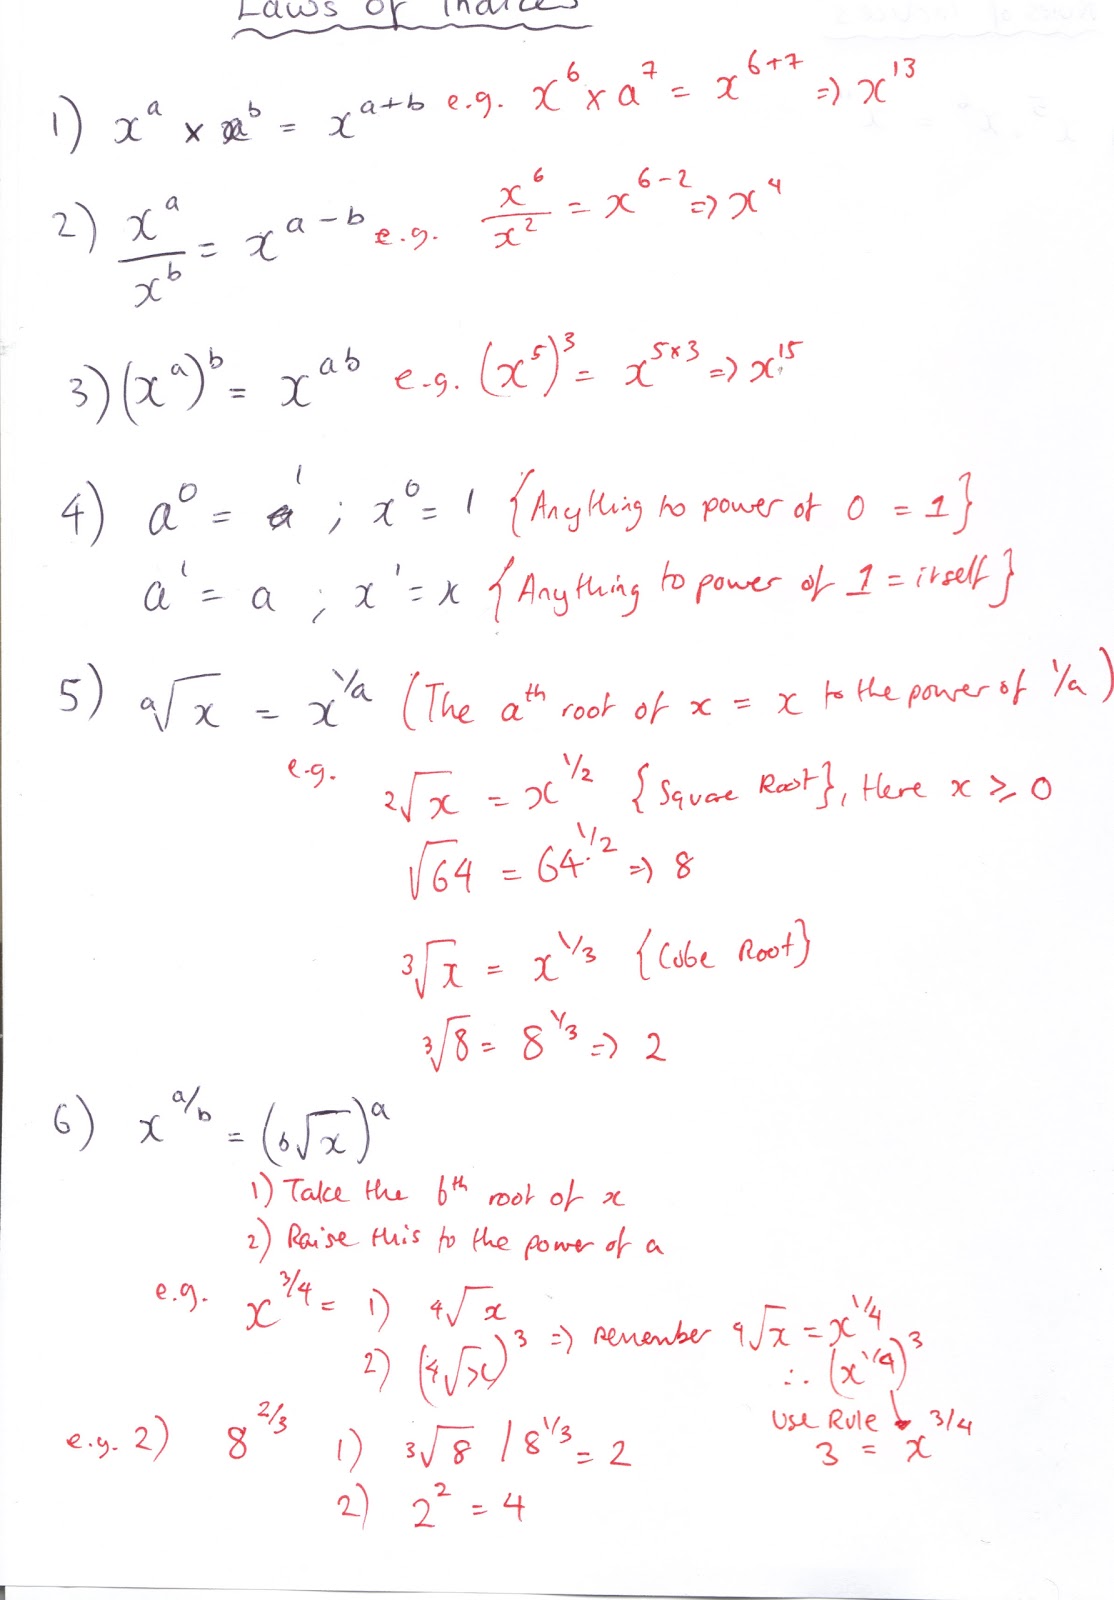 Laws of Indices
1) x^a × x^b = x^(a+b) e.g. x^6 × a^7 = x^(6+7) => x^13
2) x^a / x^b = x^(a-b) e.g. x^6 / x^2 = x^(6-2) => x^4
3) (x^a)^b = x^(ab) e.g. (x^5)^3 = x^(5×3) => x^15
4) a^0 = 1 ; x^0 = 1 {Anything to power of 0 = 1}
a^1 = a ; x^1 = x {Anything to power of 1 = itself}
5) a√x = x^(1/a) (The a^th root of x = x to the power of 1/a)
e.g. 2√x = x^(1/2) {Square Root}, Here x ⩾ 0
√64 = 64^(1/2) => 8
3√x = x^(1/3) {Cube Root}
3√8 = 8^(1/3) => 2
6) x^(a/b) = (b√x)^a
1) Take the b^th root of x
2) Raise this to the power of a
e.g. x^(3/4) = 1) 4√x
2) (4√x)^3 => remember 4√x = x^(1/4)
∴ (x^(1/4))^3
Use Rule 3 = x^(3/4)
e.g. 2) 8^(2/3) 1) 3√8 / 8^(1/3) = 2
2) 2^2 = 4